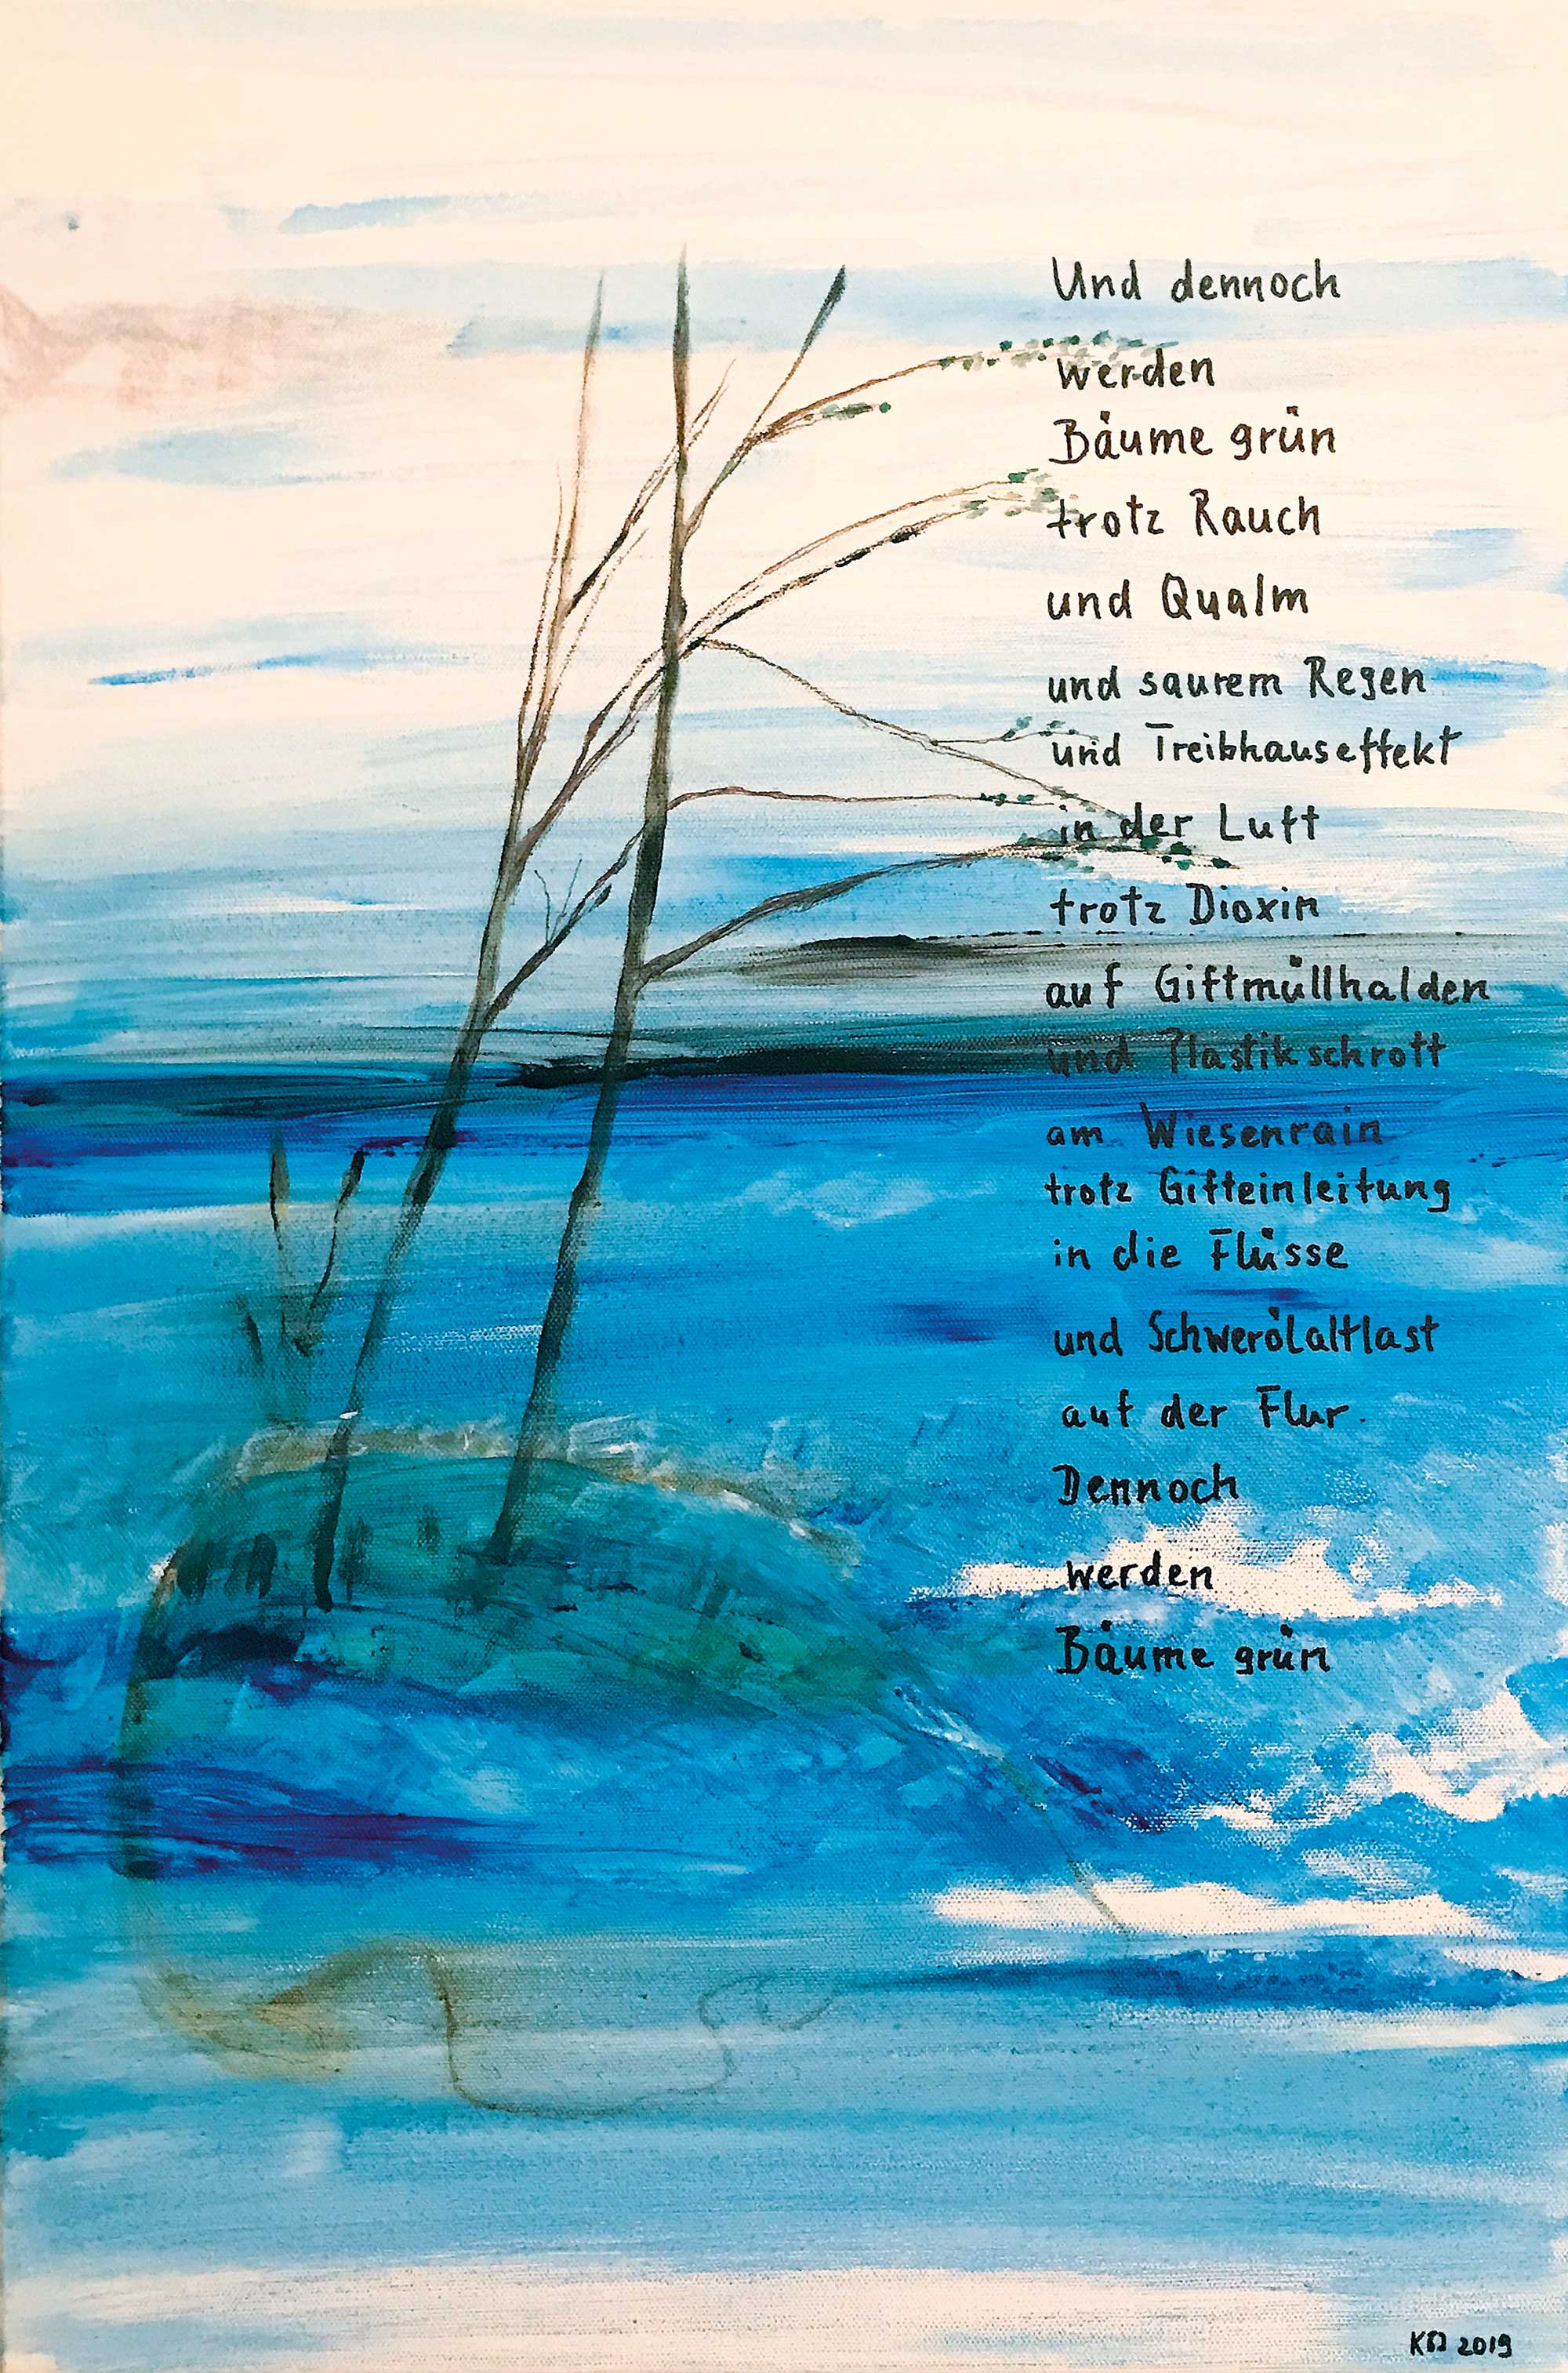 Und dennoch
werden
Bäume grün
trotz Rauch
und Qualm
und saurem Regen
und Treibhauseffekt
in der Luft
trotz Dioxin
auf Giftmüllhalden
und Plastikschrott
am Wiesenrain
trotz Gifteinleitung
in die Flüsse
und Schwerölaltlast
auf der Flur.
Dennoch
werden
Bäume grün
2019